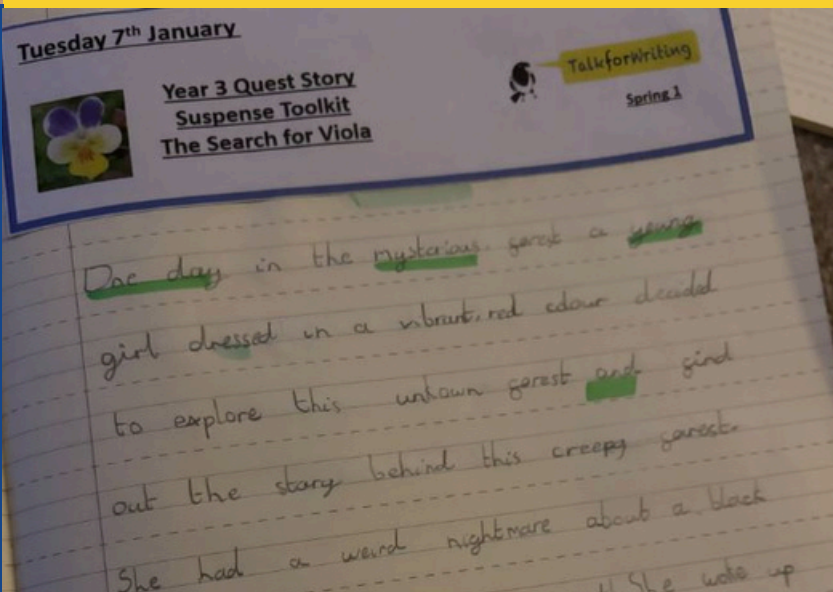 Tuesday 7th January
Year 3 Quest Story
Suspense Toolkit
The Search for Viola
TalkforWriting
Spring 1
One day in the mysterious forest a young
girl dressed in a vibrant, red colour decided
to explore this unkown forest and find
out the story behind this creepy forest.
She had a weird nightmare about a black
She woke up